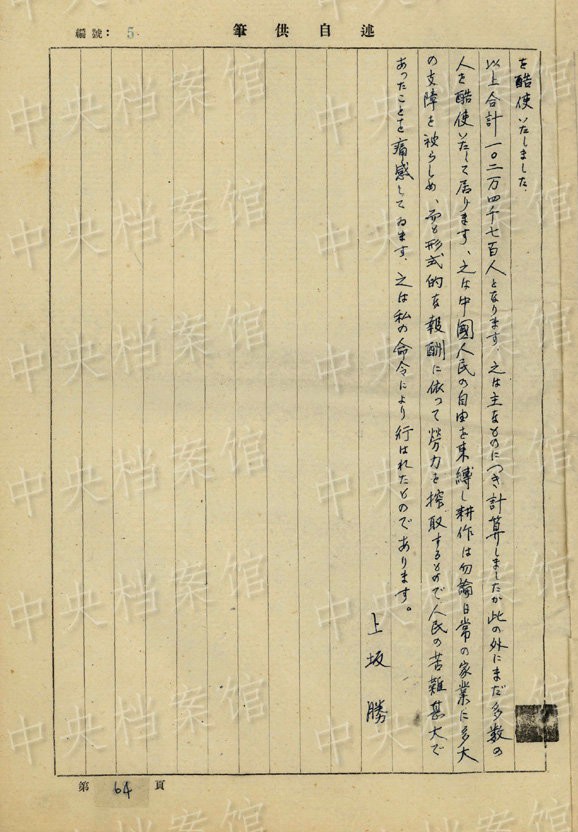 編號: 5.
筆供自述
を酷使いたしました.
以上合計一〇二万四千七百人となります、之は主なものにつき計算しましたが此の外にまだ多数の
人を酷使いたして居ります、之は中國人民の自由を束縛し耕作は勿論日常の家業に多大
の支障を被らしめ、而も形式的な報酬に依って労力を搾取するもので人民の苦難甚大で
あったことを痛感してゐます、之は私の命令により行はれたものであります。
上坂勝
第 64 頁
中央档案馆